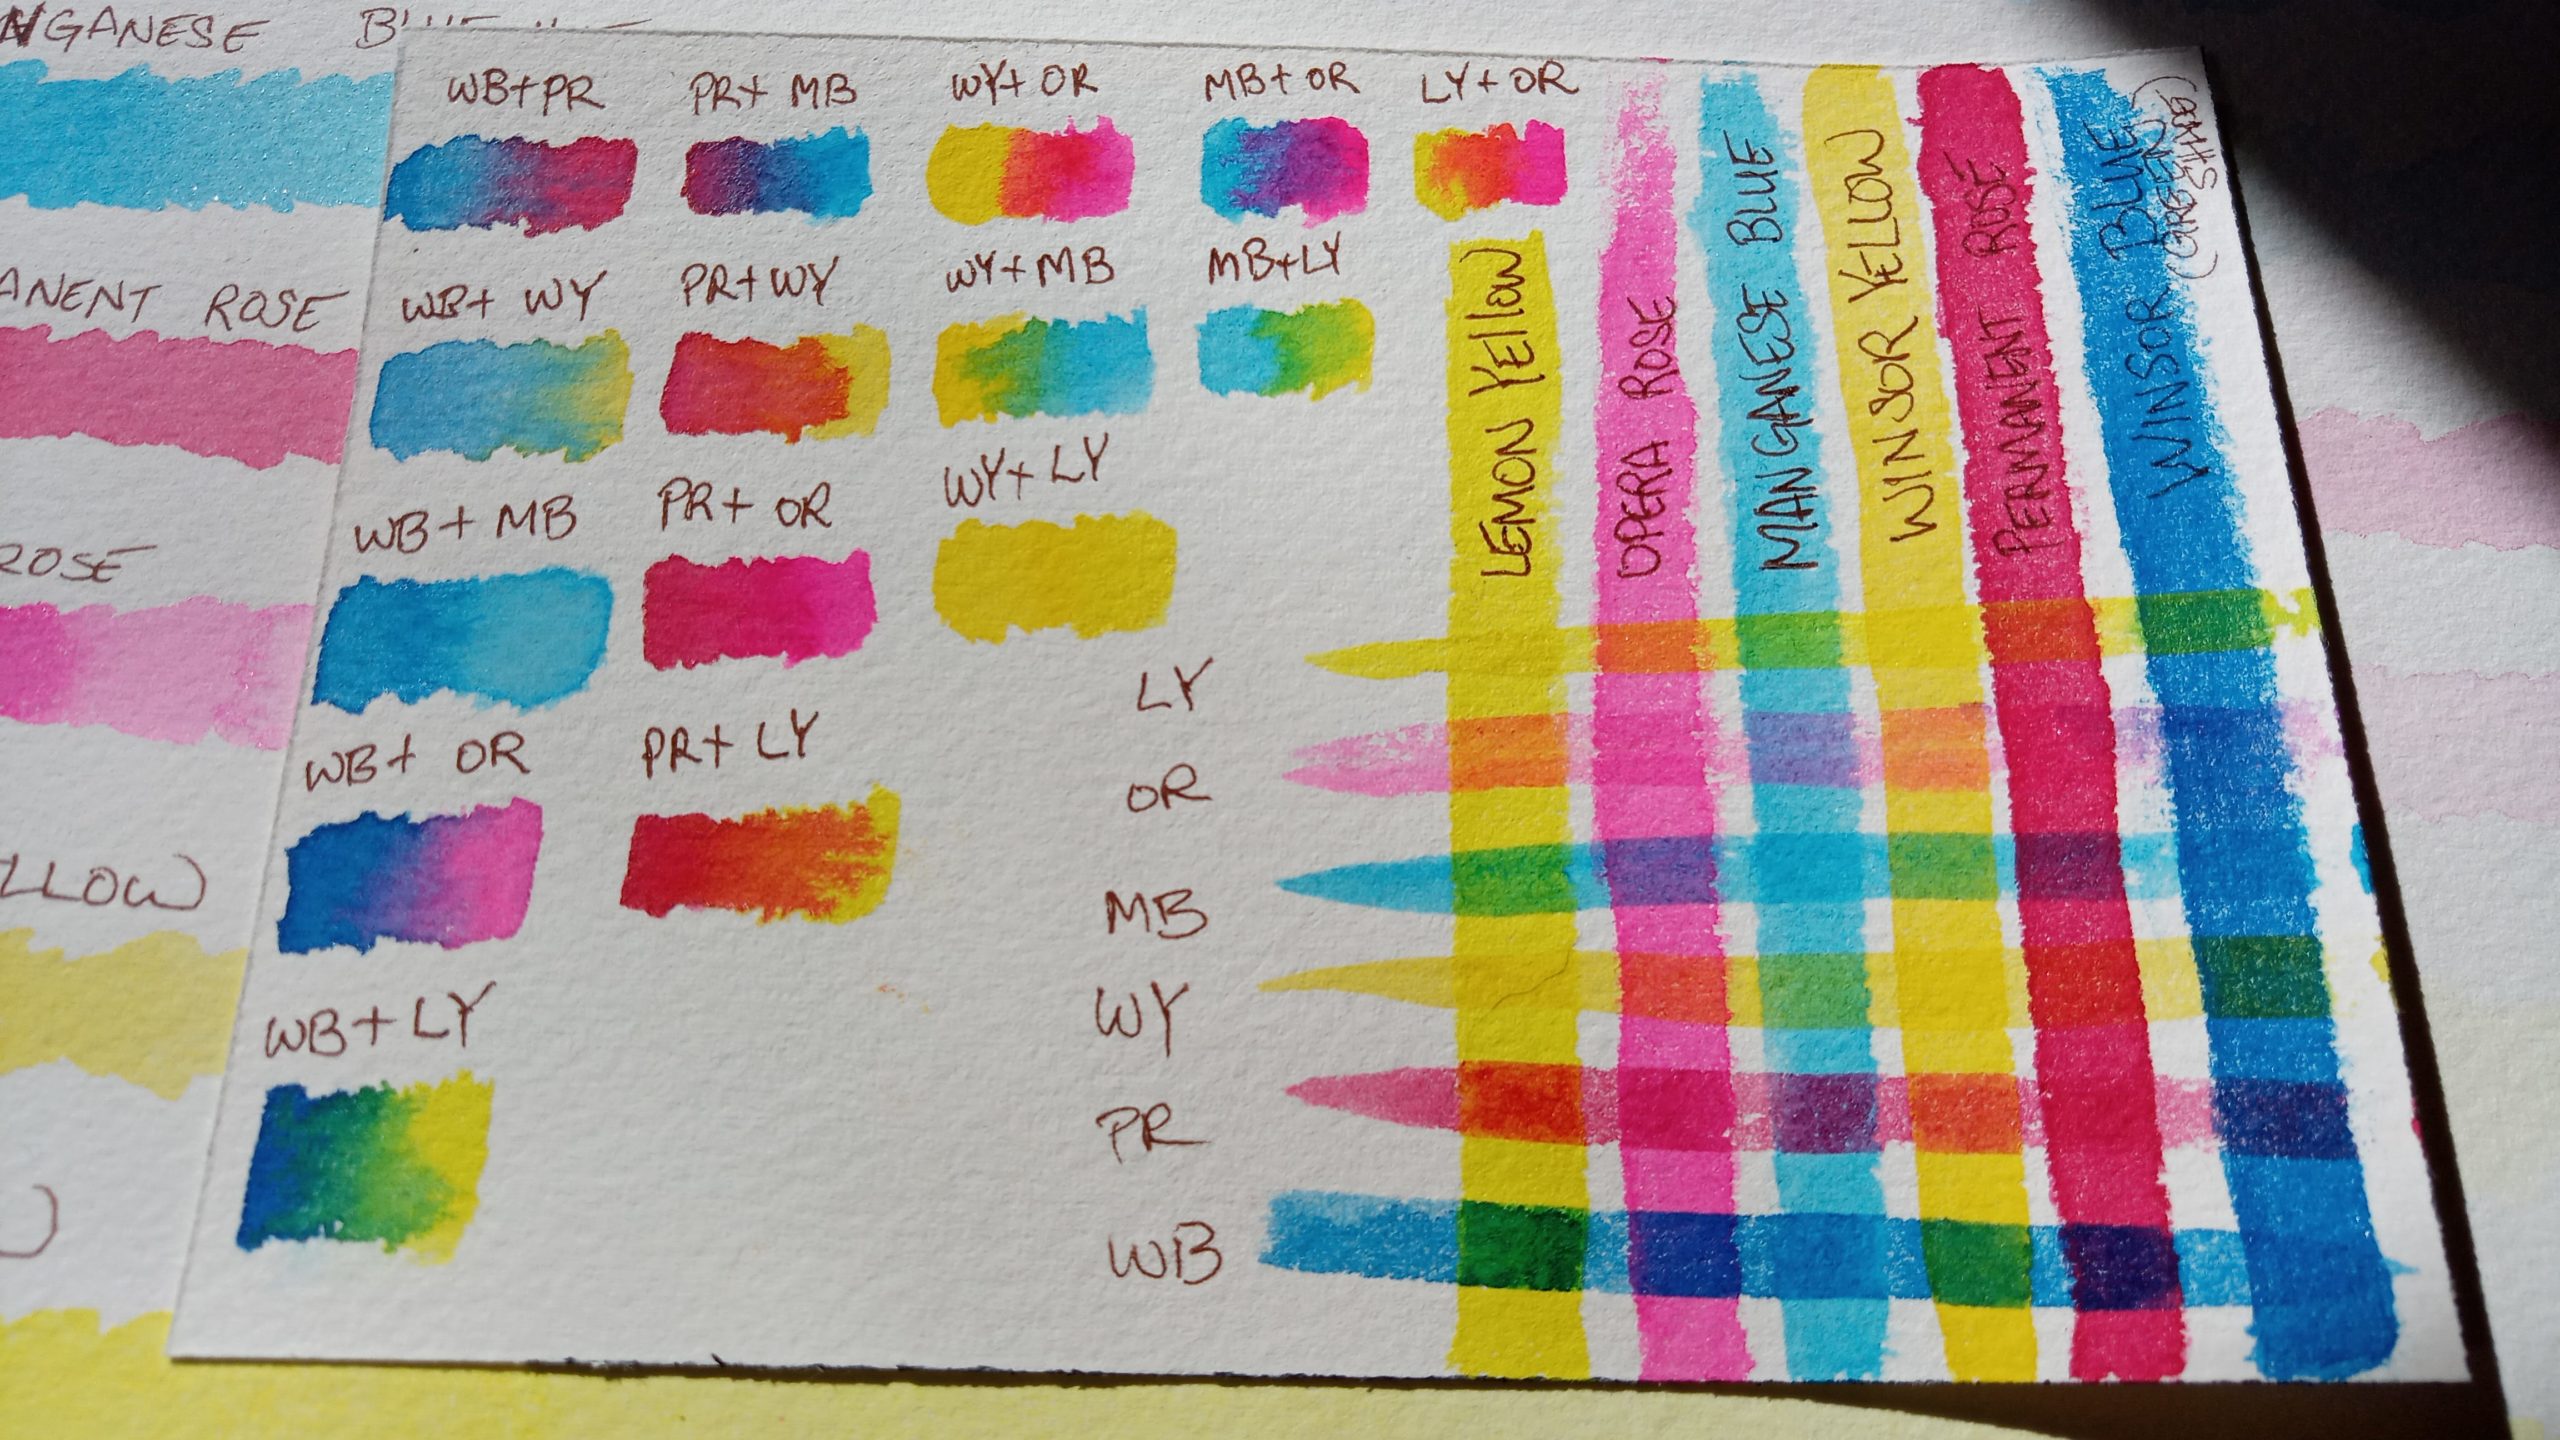 NGANESE
WB+PR
PR+ MB
WY+ OR
MB+ OR
LY+OR
WB+ WY
PR+WY
WY+MB
MB+LY
WB+ MB
PR+ OR
WY+ LY
WB+ OR
PR+ LY
WB+ LY
LEMON YEllow
OPERA ROSE
MANGANESE BLUE
WINSOR YELLOW
PERMANENT ROSE
WINSOR BLUE
(GREEN
SHADE)
LY
OR
MB
WY
PR
WB
ANENT ROSE
ROSE
LLOW
)